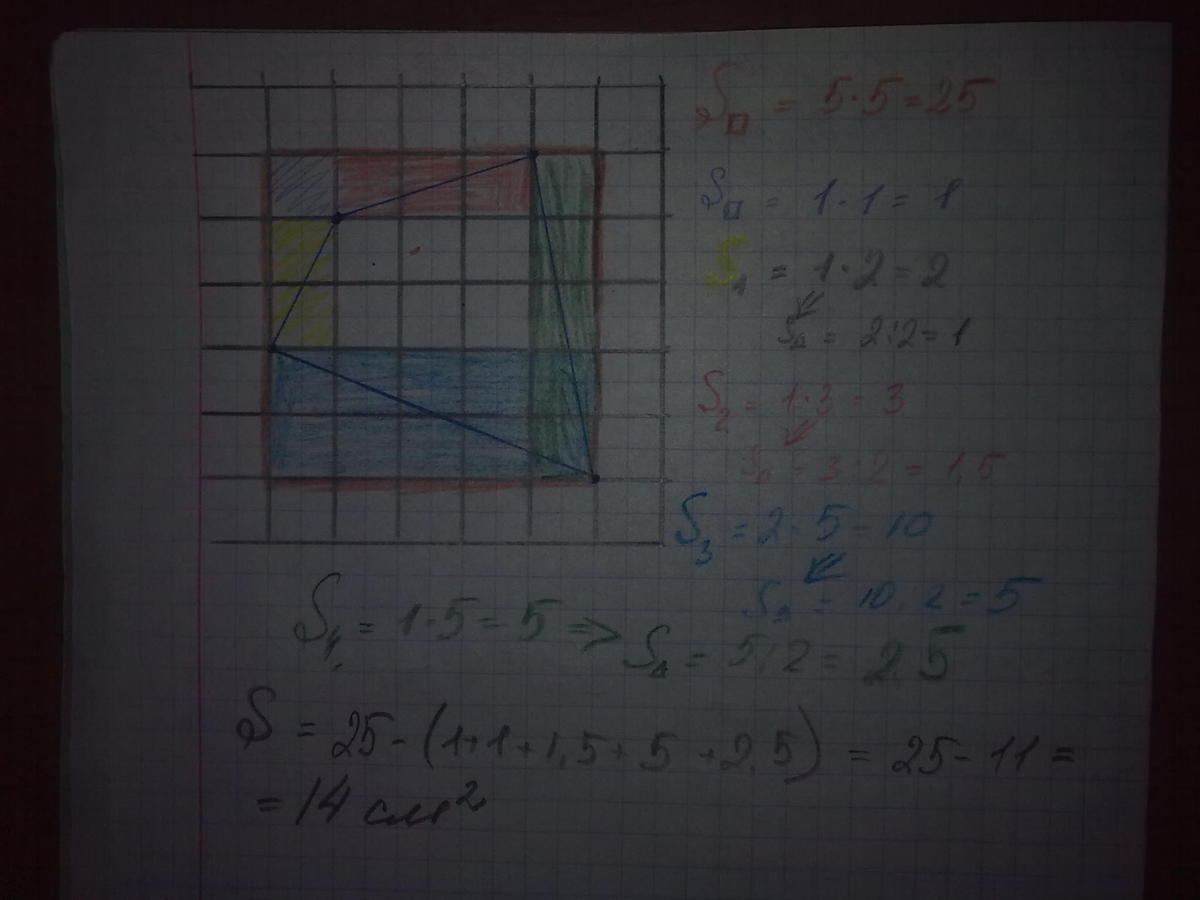 S□ = 5·5=25
S□ = 1·1= 1
S₁ = 1·2=2
S△ = 2:2=1
S₂ = 1·3=3
S△ = 3:2=1,5
S₃ = 2·5=10
S△ = 10:2=5
S₄ = 1·5=5 => S△ = 5:2= 2,5
S = 25-(1+1+1,5+5+2,5) = 25-11=
=14 см²